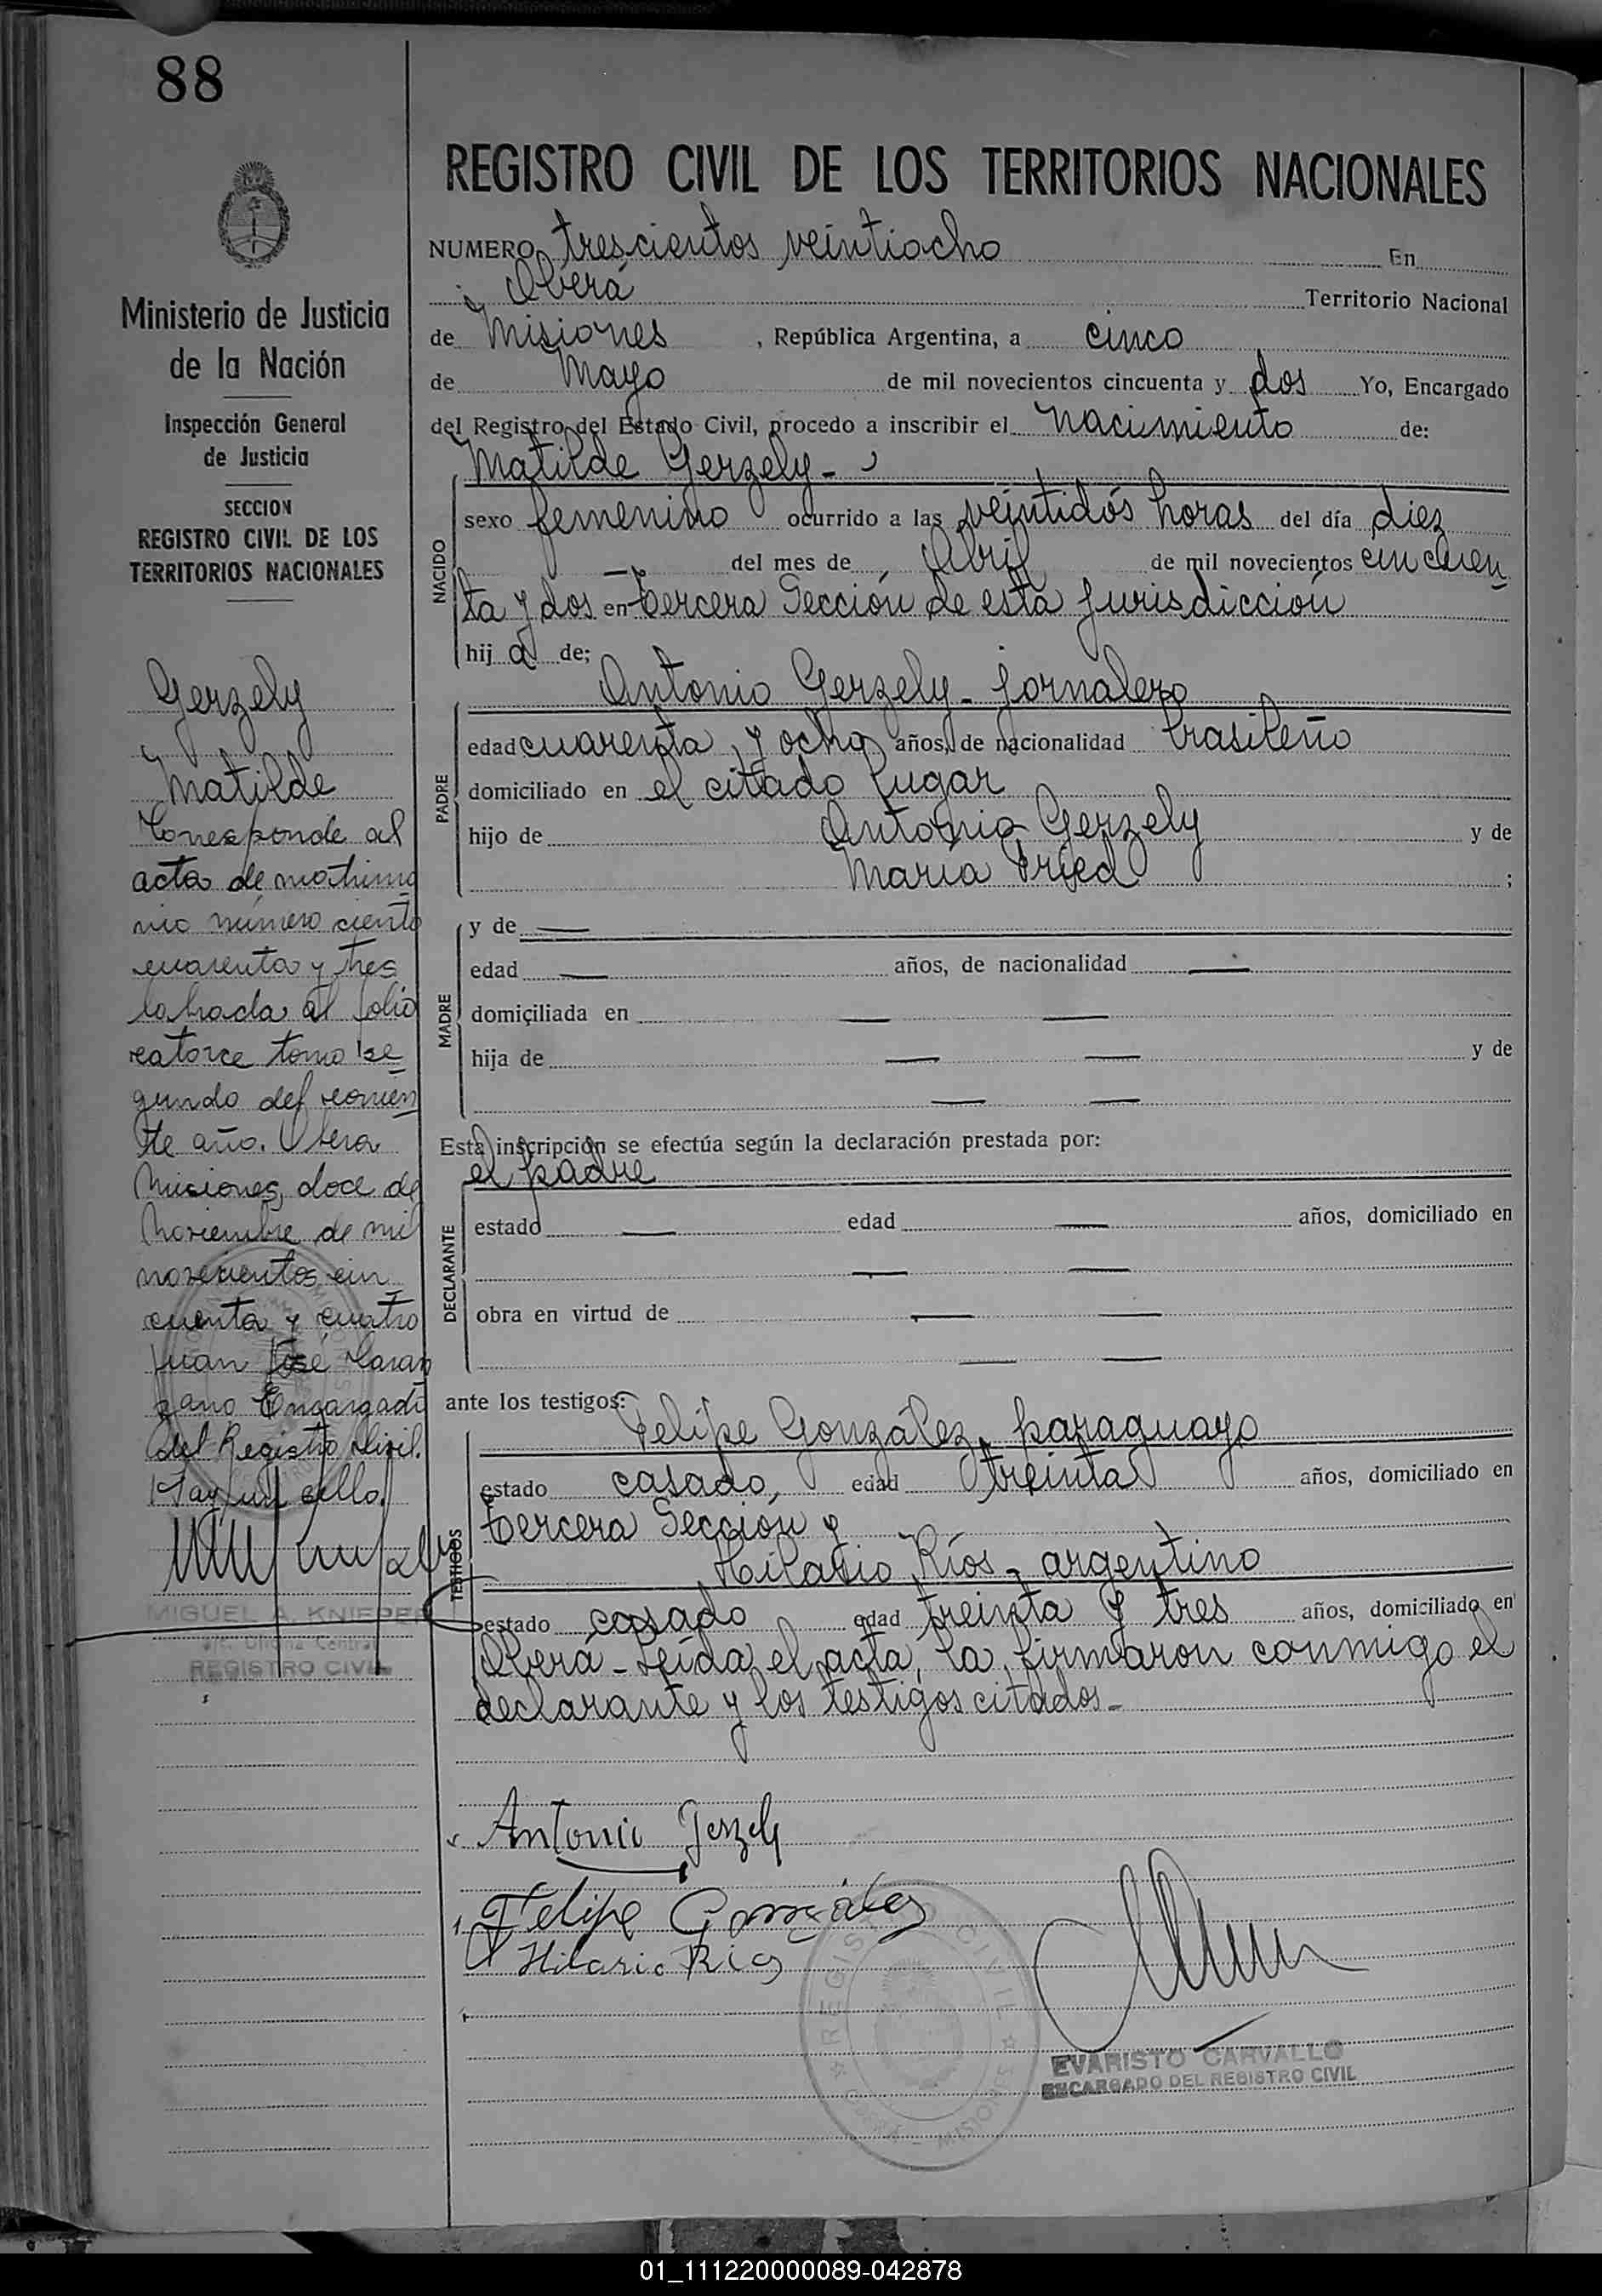 88
REGISTRO CIVIL DE LOS TERRITORIOS NACIONALES
NUMERO trescientos veintiocho En
Oberá Territorio Nacional
de Misiones, República Argentina, a cinco
de Mayo de mil novecientos cincuenta y dos Yo, Encargado
del Registro del Estado Civil, procedo a inscribir el nacimiento de:
Matilde Gerzely-
NACIDO
sexo femenino ocurrido a las veintidós horas del día diez
— del mes de Abril de mil novecientos cincuen
ta y dos en tercera Sección de esta jurisdicción
hija de;
PADRE
Antonio Gerzely - jornalero
edad cuarenta y ocho años, de nacionalidad brasileño
domiciliado en el citado lugar
hijo de Antonio Gerzely y de
María Fried ;
MADRE
y de —
edad — años, de nacionalidad —
domiciliada en — —
hija de — — y de
— —
Esta inscripción se efectúa según la declaración prestada por:
el padre
DECLARANTE
estado — edad — años, domiciliado en
— —
obra en virtud de — —
— —
ante los testigos:
TESTIGOS
Felipe González, paraguayo
estado casado, edad treinta años, domiciliado en
tercera Sección y
Hilario Ríos - argentino
estado casado edad treinta y tres años, domiciliado en
Oberá - Leída el acta, la firmaron conmigo el
declarante y los testigos citados -
Antonio Gerzely
Felipe González
Hilario Rios
REGISTRO CIVIL
OBERÁ - MISIONES
EVARISTO CARVALLO
ENCARGADO DEL REGISTRO CIVIL
Ministerio de Justicia
de la Nación
Inspección General
de Justicia
SECCION
REGISTRO CIVIL DE LOS
TERRITORIOS NACIONALES
Gerzely
Matilde
Corresponde al
acta de matrimo
nio número ciento
cuarenta y tres
labrada al folio
catorce tomo se
gundo del corrien
te año. Obera
Misiones, doce de
Noviembre de mil
novecientos cin
cuenta y cuatro
Juan José
Encargado
del Registro Civil.
Hay un sello.
MIGUEL A. KNIEPER
a/c. Oficina Central
REGISTRO CIVIL
01_111220000089-042878